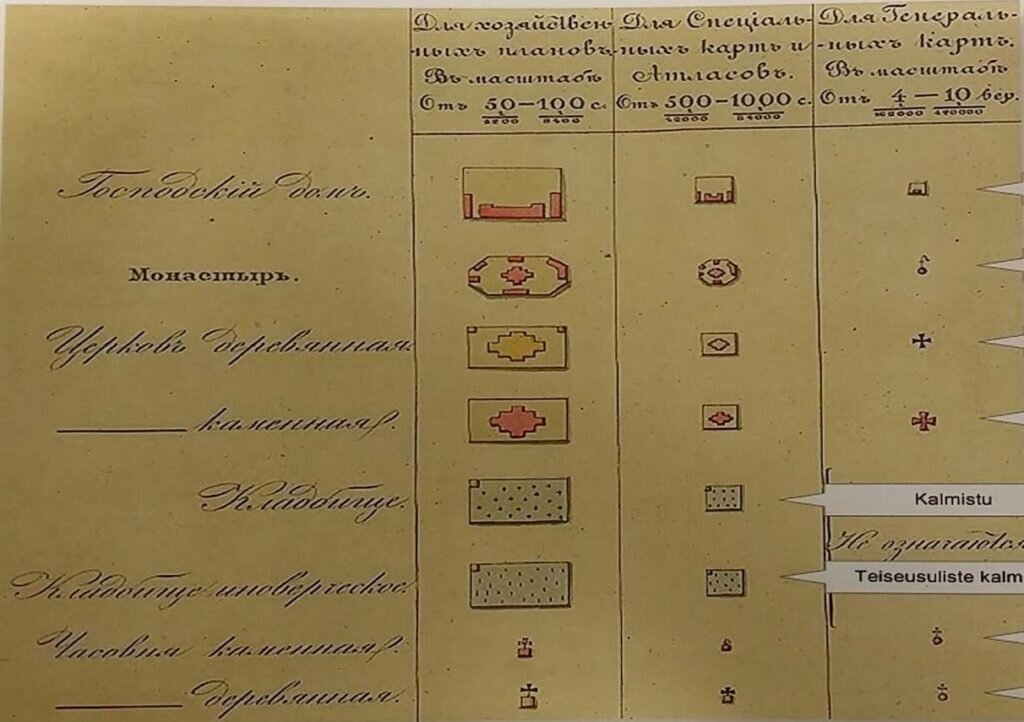 Для хозяйствен-
-ныхъ плановъ.
Въ масштабѣ
Отъ 50—100 с.
4200 8400
Для Спеціаль-
-ныхъ картъ и
Атласовъ.
Отъ 500—1000 с.
42000 84000
Для Генераль-
-ныхъ картъ.
Въ масштабѣ
Отъ 4—10 вер.
168000 420000
Господскій домъ.
Монастырь.
Церковь деревянная.
каменная.
Кладбище.
Kalmistu
Не означаются
Кладбище иноверческое.
Teiseusuliste kalm
Часовня каменная.
деревянная.